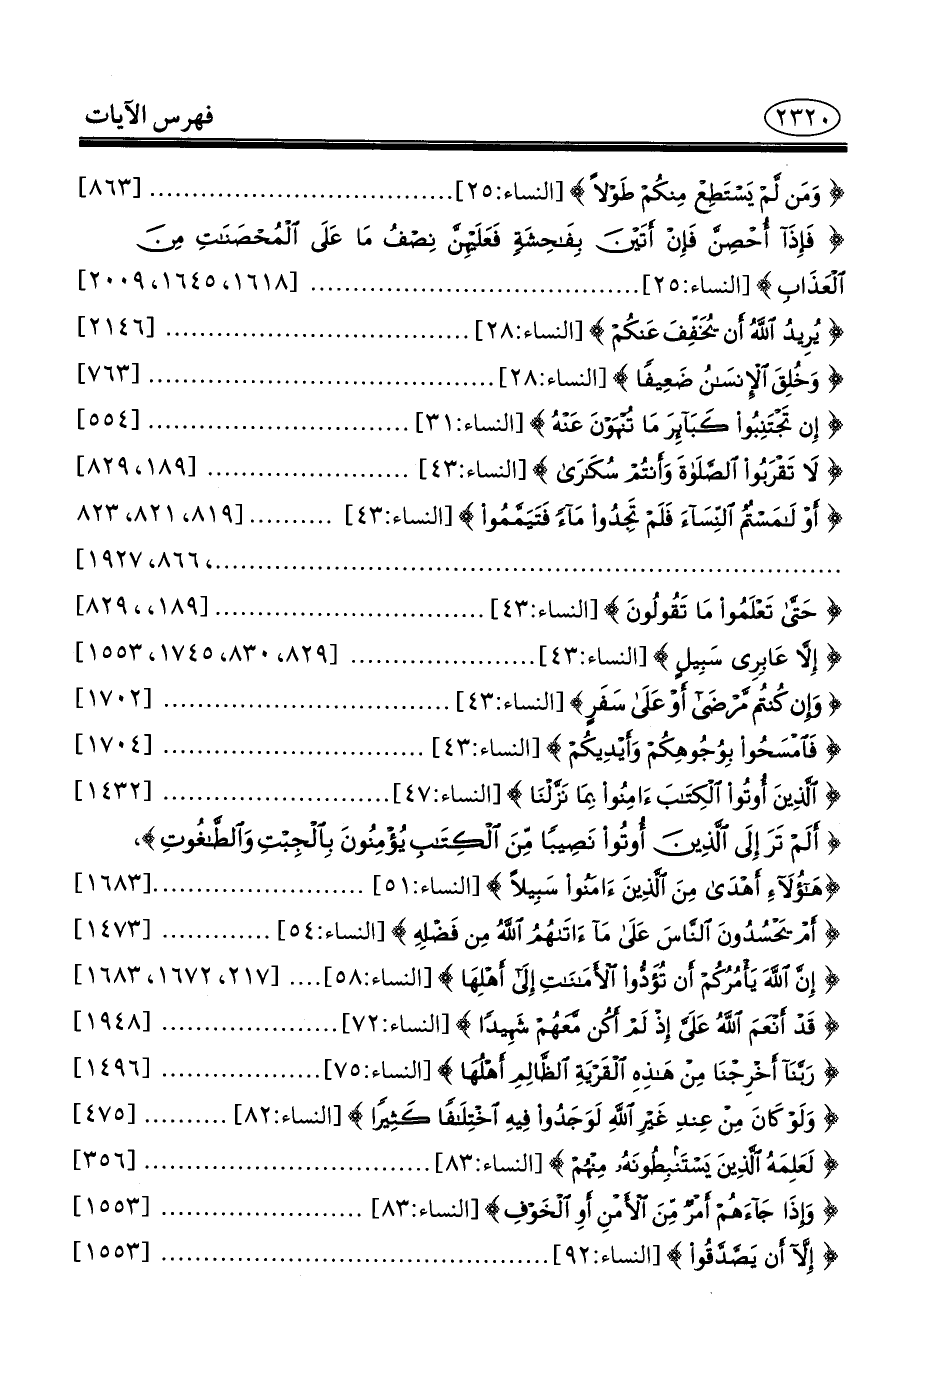 ٢٣٢٠ فهرس الآيات
﴿ وَمَن لَّمْ يَسْتَطِعْ مِنكُمْ طَوْلاً ﴾ [النساء:٢٥]................................... [٨٦٣]
﴿ فَإِذَآ أُحْصِنَّ فَإِنْ أَتَيْنَ بِفَـٰحِشَةٍ فَعَلَيْهِنَّ نِصْفُ مَا عَلَى ٱلْمُحْصَنَـٰتِ مِنَ
ٱلْعَذَابِ ﴾ [النساء:٢٥]...................................... [١٦١٨، ١٦٤٥، ٢٠٠٩]
﴿ يُرِيدُ ٱللَّهُ أَن يُخَفِّفَ عَنكُمْ ﴾ [النساء:٢٨]................................... [٢١٤٦]
﴿ وَخُلِقَ ٱلْإِنسَـٰنُ ضَعِيفًا ﴾ [النساء:٢٨]........................................ [٧٦٣]
﴿ إِن تَجْتَنِبُوا۟ كَبَآئِرَ مَا تُنْهَوْنَ عَنْهُ ﴾ [النساء:٣١].............................. [٥٥٤]
﴿ لَا تَقْرَبُوا۟ ٱلصَّلَوٰةَ وَأَنتُمْ سُكَـٰرَىٰ ﴾ [النساء:٤٣]....................... [١٨٩، ٨٢٩]
﴿ أَوْ لَـٰمَسْتُمُ ٱلنِّسَآءَ فَلَمْ تَجِدُوا۟ مَآءً فَتَيَمَّمُوا۟ ﴾ [النساء:٤٣] .......... [٨١٩، ٨٢١، ٨٢٣
.........................................................................، ٨٦٦، ١٩٢٧]
﴿ حَتَّىٰ تَعْلَمُوا۟ مَا تَقُولُونَ ﴾ [النساء:٤٣]............................... [١٨٩، ، ٨٢٩]
﴿ إِلَّا عَابِرِى سَبِيلٍ ﴾ [النساء:٤٣]...................... [٨٢٩، ٨٣٠، ١٧٤٥، ١٥٥٣]
﴿ وَإِن كُنتُم مَّرْضَىٰٓ أَوْ عَلَىٰ سَفَرٍ﴾ [النساء:٤٣]................................. [١٧٠٢]
﴿ فَٱمْسَحُوا۟ بِوُجُوهِكُمْ وَأَيْدِيكُمْ ﴾ [النساء:٤٣] .............................. [١٧٠٤]
﴿ ٱلَّذِينَ أُوتُوا۟ ٱلْكِتَـٰبَ ءَامِنُوا۟ بِمَا نَزَّلْنَا ﴾ [النساء:٤٧].......................... [١٤٣٢]
﴿ أَلَمْ تَرَ إِلَى ٱلَّذِينَ أُوتُوا۟ نَصِيبًا مِّنَ ٱلْكِتَـٰبِ يُؤْمِنُونَ بِٱلْجِبْتِ وَٱلطَّـٰغُوتِ ﴾،
﴿هَـٰٓؤُلَآءِ أَهْدَىٰ مِنَ ٱلَّذِينَ ءَامَنُوا۟ سَبِيلاً ﴾ [النساء:٥١] ........................[١٦٨٣]
﴿ أَمْ يَحْسُدُونَ ٱلنَّاسَ عَلَىٰ مَآ ءَاتَىٰهُمُ ٱللَّهُ مِن فَضْلِهِ ﴾ [النساء:٥٤] ............. [١٤٧٣]
﴿ إِنَّ ٱللَّهَ يَأْمُرُكُمْ أَن تُؤَدُّوا۟ ٱلْأَمَـٰنَـٰتِ إِلَىٰٓ أَهْلِهَا ﴾ [النساء:٥٨].... [٢١٧، ١٦٧٢، ١٦٨٣]
﴿ قَدْ أَنْعَمَ ٱللَّهُ عَلَىَّ إِذْ لَمْ أَكُن مَّعَهُمْ شَهِيدًا ﴾ [النساء:٧٢].................... [١٩٤٨]
﴿ رَبَّنَآ أَخْرِجْنَا مِنْ هَـٰذِهِ ٱلْقَرْيَةِ ٱلظَّالِمِ أَهْلُهَا ﴾ [النساء:٧٥]................... [١٤٩٦]
﴿ وَلَوْ كَانَ مِنْ عِندِ غَيْرِ ٱللَّهِ لَوَجَدُوا۟ فِيهِ ٱخْتِلَـٰفًا كَثِيرًا ﴾ [النساء:٨٢] .......... [٤٧٥]
﴿ لَعَلِمَهُ ٱلَّذِينَ يَسْتَنۢبِطُونَهُۥ مِنْهُمْ ﴾ [النساء:٨٣]................................. [٣٥٦]
﴿ وَإِذَا جَآءَهُمْ أَمْرٌ مِّنَ ٱلْأَمْنِ أَوِ ٱلْخَوْفِ﴾ [النساء:٨٣] ........................ [١٥٥٣]
﴿ إِلَّآ أَن يَصَّدَّقُوا۟ ﴾ [النساء:٩٢]............................................. [١٥٥٣]